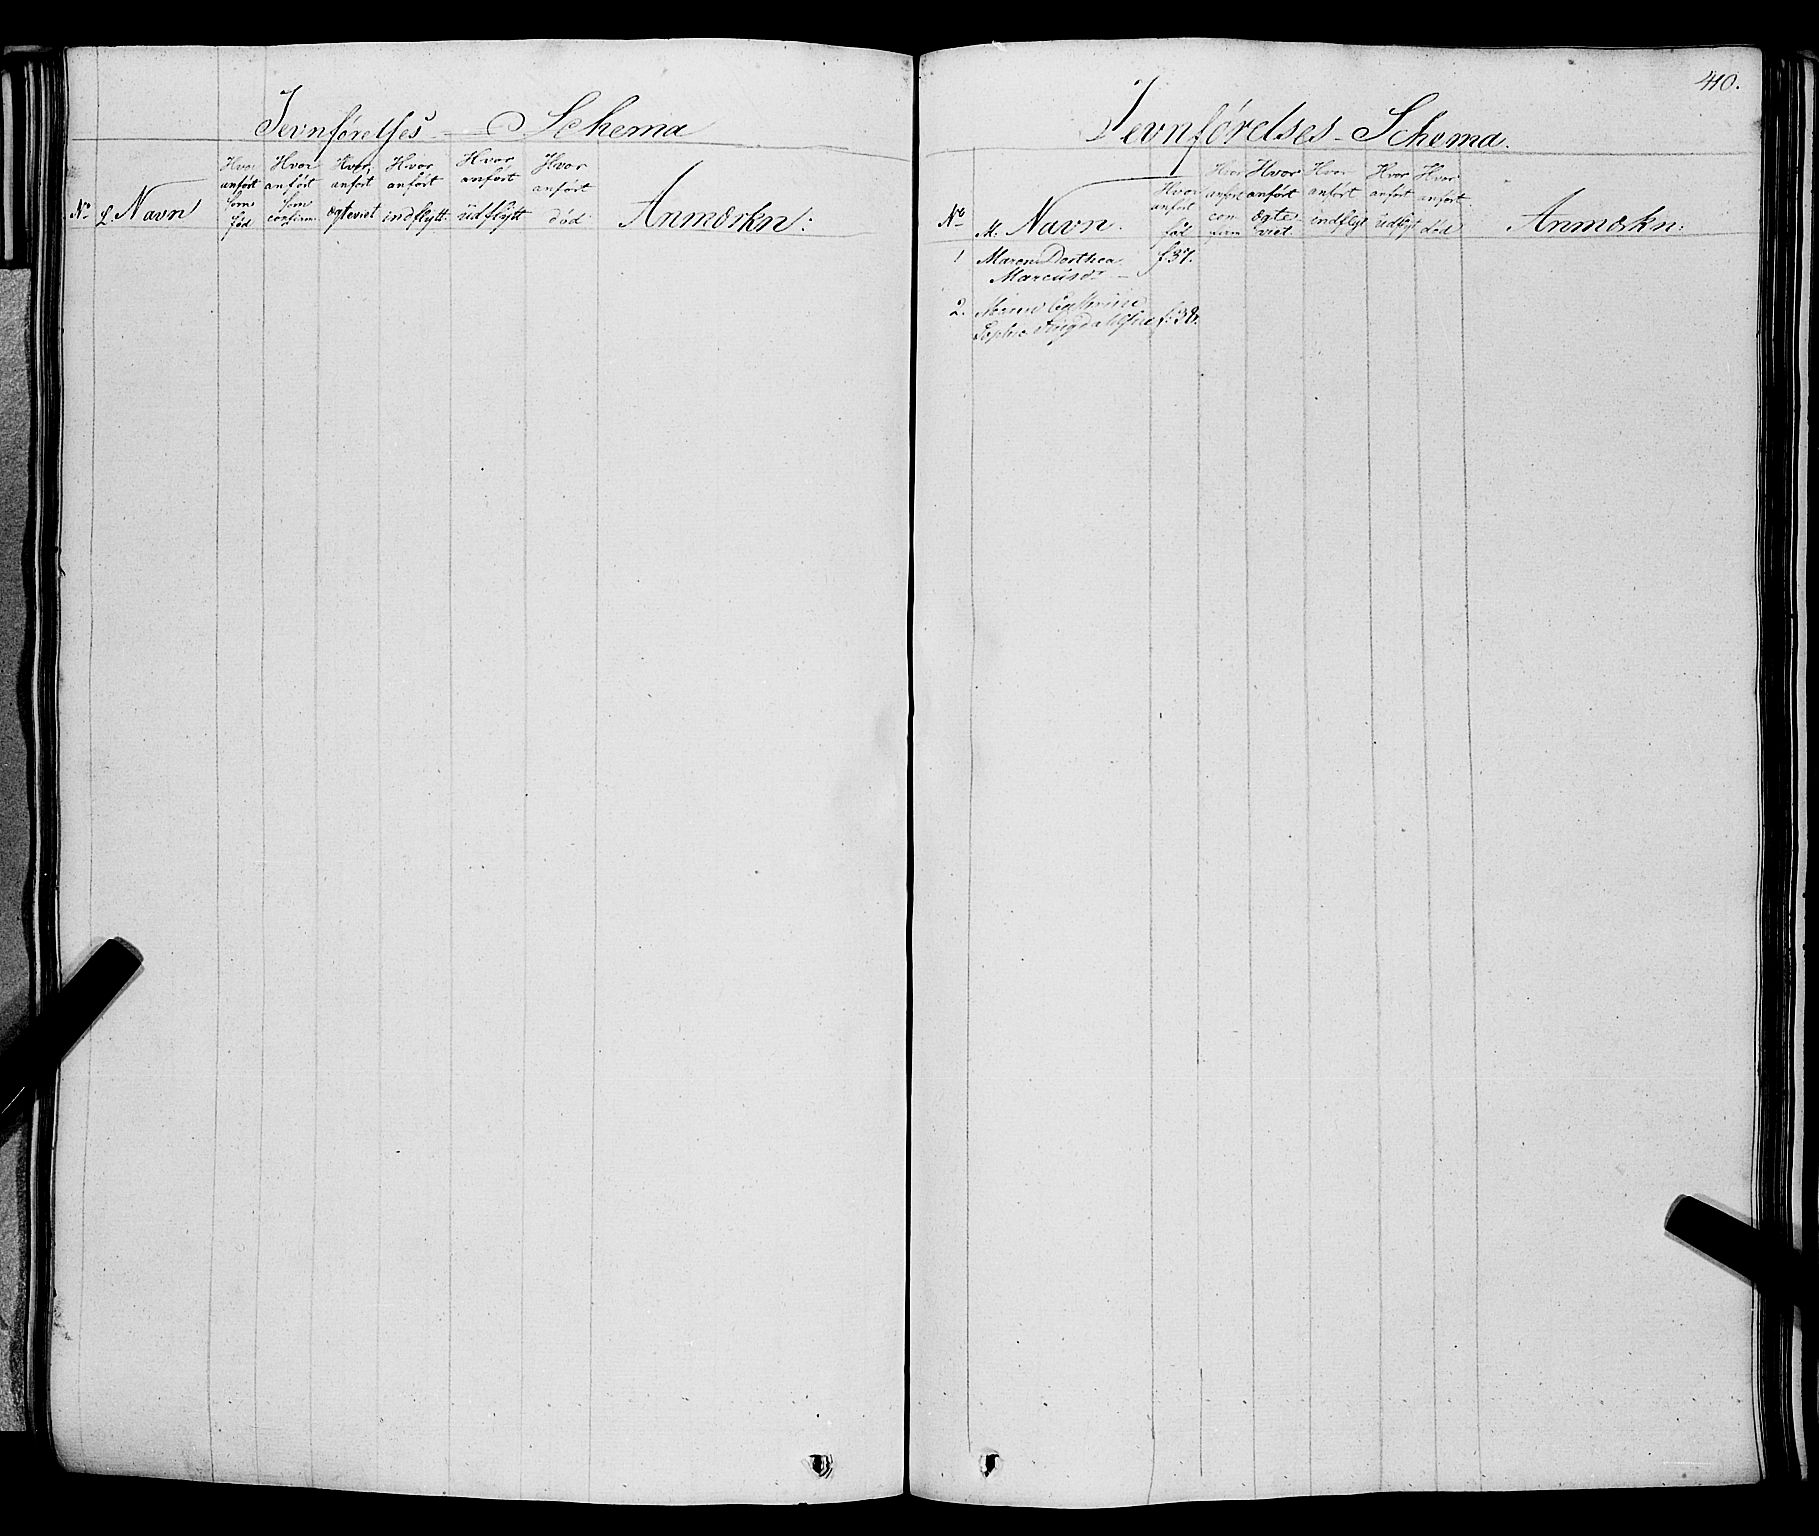 Jevnførelses - Schema
No
L. Navn
Hvor anført som fød
Hvor anført som confirm:
Hvor anført ægteviet
Hvor anført indflytt:
Hvor anført üdflytt
Hvor anført död
Anmærkn:
410.
Jevnførelses - Schema.
No
M. Navn.
Hvor anført fød
Hvor anført con-firm
Hvor anført ægte-viet.
Hvor anført indflyt
Hvor anført üdflyt
Hvor anført död
Anmærkn:
1 Maren Dorthea f 37.
Marcusdr
2. Cathrine
Sophie f: 38.